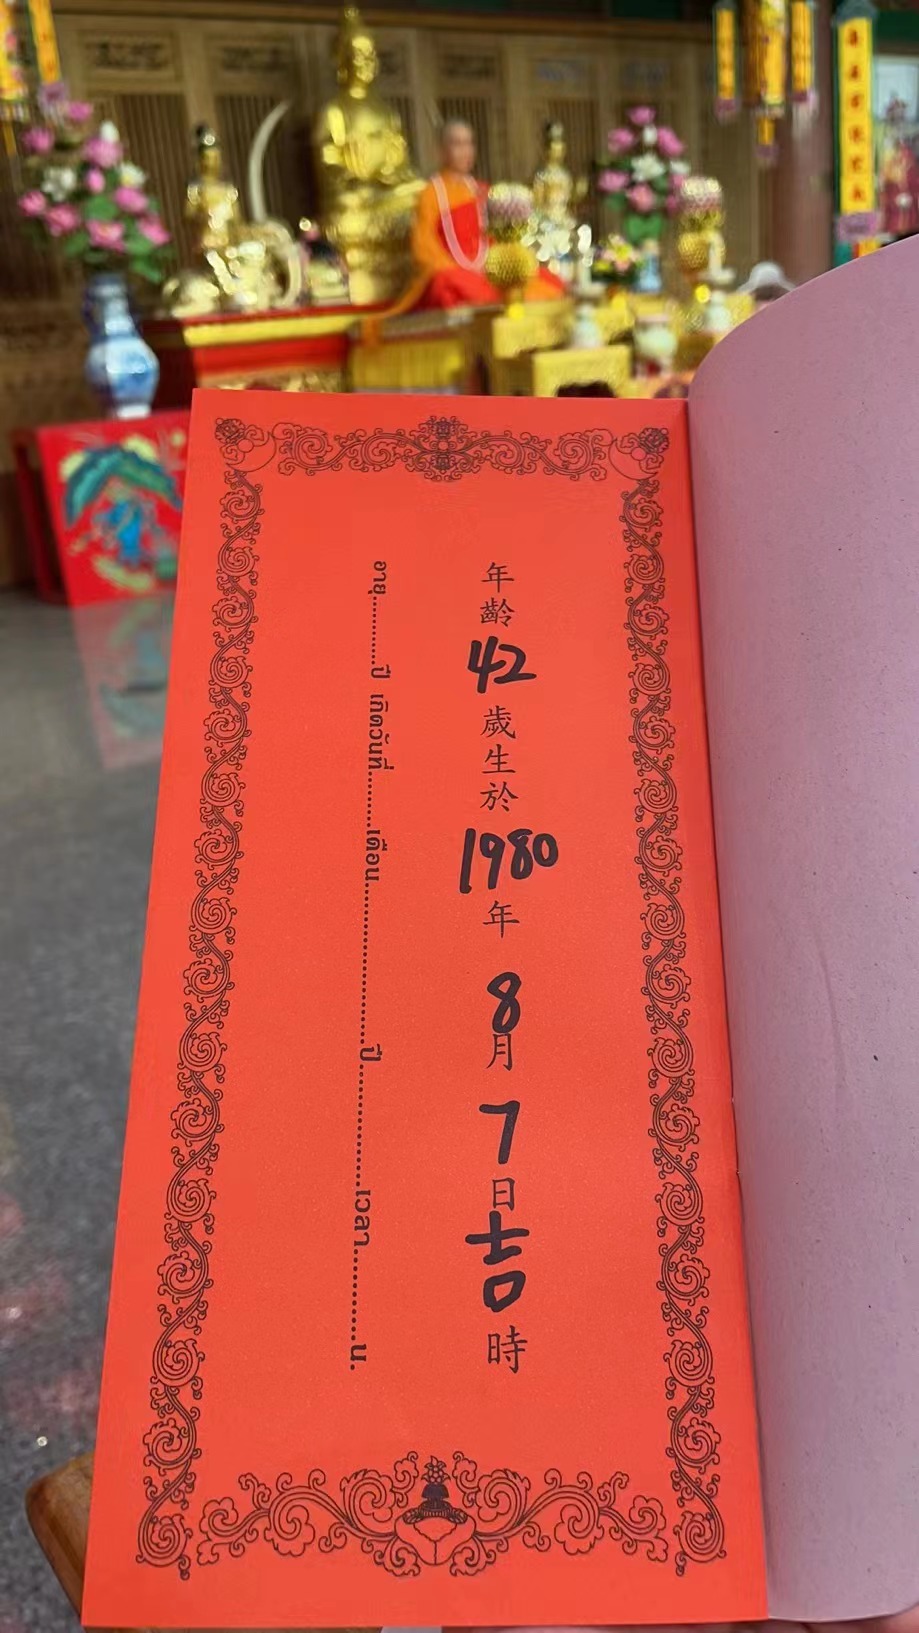 年齡42歲生於1980年8月7日吉時
อายุ..........ปี เกิดวันที่..........เดือน....................ปี..............เวลา............น.